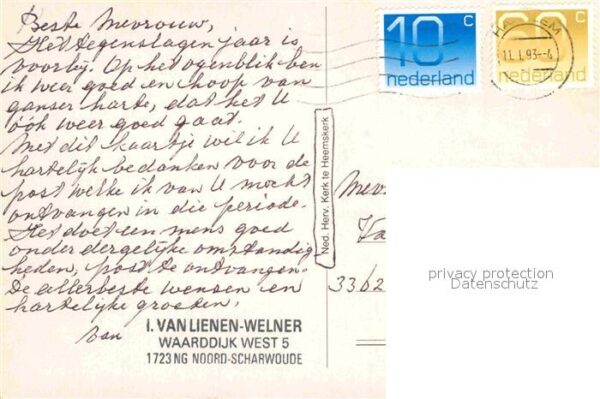 Beste Mevrouw,
Het tegenslagen jaar is
voorbij. Op het ogenblik ben
ik weer goed en ik hoop van
ganser harte, dat het U
óók weer goed gaat.
Met dit kaartje wil ik U
hartelijk bedanken voor de
post welke ik van U mocht
ontvangen in die periode.
Het doet een mens goed
onder dergelijke omstandig
heden, post te ontvangen.
De allerbeste wensen en
hartelijke groeten,
van
I. VAN LIENEN-WELNER
WAARDDIJK WEST 5
1723 NG NOORD-SCHARWOUDE
Ned. Herv. Kerk te Heemskerk
10 c
nederland
c
nederland
11.I.93--4
Mev
Va
3362
privacy protection
Datenschutz